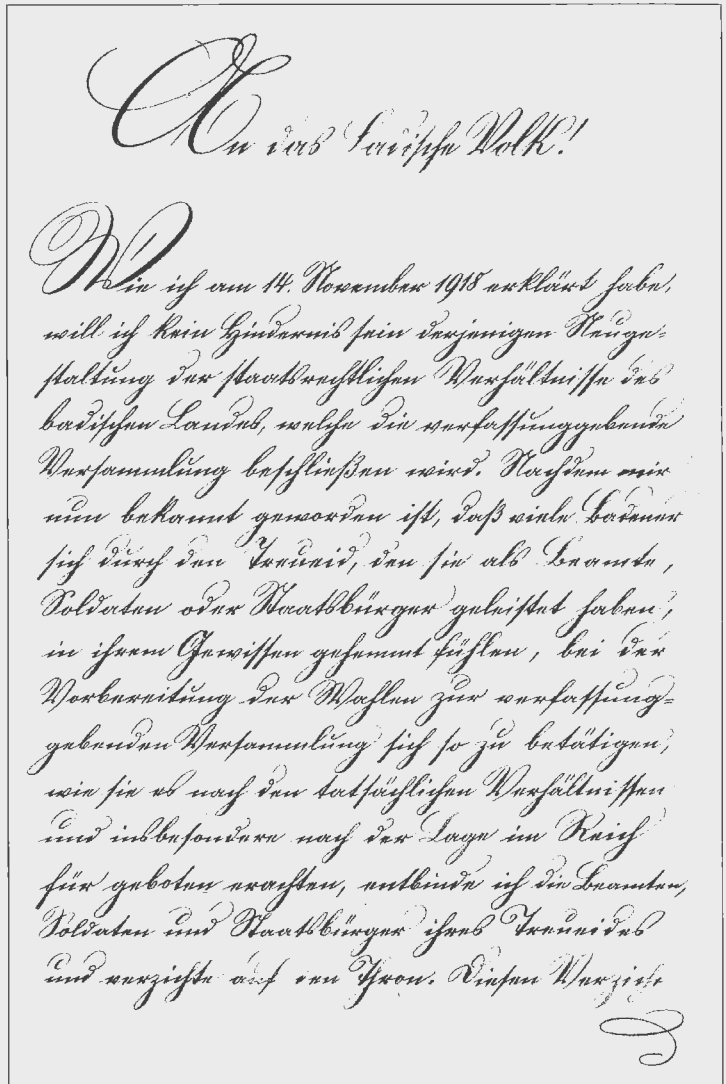 An das Badische Volk!
Wie ich am 14. November 1918 erklärt habe,
will ich kein Hindernis sein derjenigen Neuge-
staltung der staatsrechtlichen Verhältnisse des
badischen Landes, welche die verfassunggebende
Versammlung beschließen wird. Nachdem mir
nun bekannt geworden ist, daß viele Badener
sich durch den Treueid, den sie als Beamte,
Soldaten oder Staatsbürger geleistet haben,
in ihrem Gewissen gehemmt fühlen, bei der
Vorbereitung der Wahlen zur verfassung-
gebenden Versammlung sich so zu betätigen,
wie sie es nach den tatsächlichen Verhältnissen
und insbesondere nach der Lage im Reich
für geboten erachten, entbinde ich die Beamten,
Soldaten und Staatsbürger ihres Treueides
und verzichte auf den Thron. Diesen Verzicht